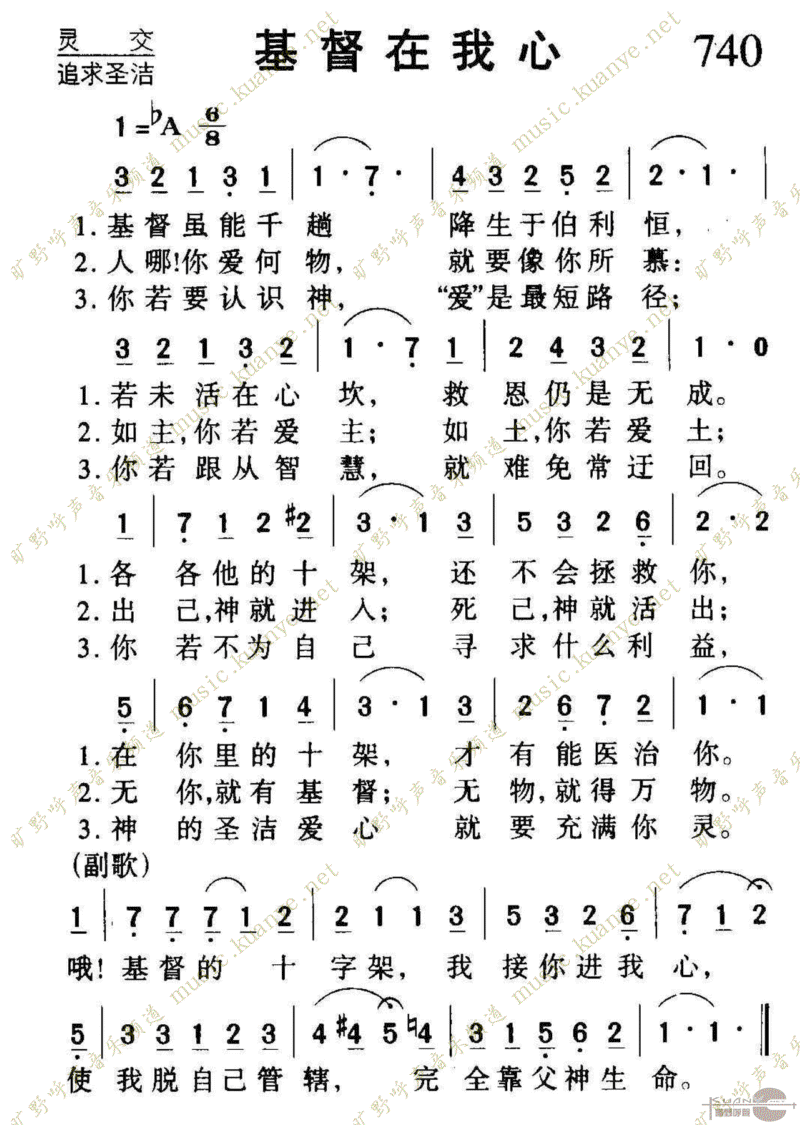 灵 交
追求圣洁
基督在我心
740
1=♭A 6/8
3 2 1 3 1 | 1 · 7 · | 4 3 2 5 2 | 2 · 1 · |
1.基督虽能千趟 降生于伯利恒,
2.人哪!你爱何物, 就要像你所慕:
3.你若要认识神, “爱”是最短路径;
3 2 1 3 2 | 1 · 7 1 | 2 4 3 2 | 1 · 0
1.若未活在心坎, 救恩仍是无成。
2.如主,你若爱主; 如土,你若爱土;
3.你若跟从智慧, 就难免常迂回。
1 | 7 1 2 #2 | 3 · 1 3 | 5 3 2 6 | 2 · 2
1.各各他的十架, 还不会拯救你,
2.出己,神就进入; 死己,神就活出;
3.你若不为自己 寻求什么利益,
5 | 6 7 1 4 | 3 · 1 3 | 2 6 7 2 | 1 · 1
1.在你里的十架, 才有能医治你。
2.无你,就有基督; 无物,就得万物。
3.神的圣洁爱心 就要充满你灵。
(副歌)
1 | 7 7 7 1 2 | 2 1 1 3 | 5 3 2 6 | 7 1 2
哦!基督的十字架,我接你进我心,
5 | 3 3 1 2 3 | 4 #4 5 ♮4 | 3 1 5 6 2 | 1 · 1 · ‖
使我脱自己管辖, 完全靠父神生命。
旷野呼声音乐频道 music.kuanye.net